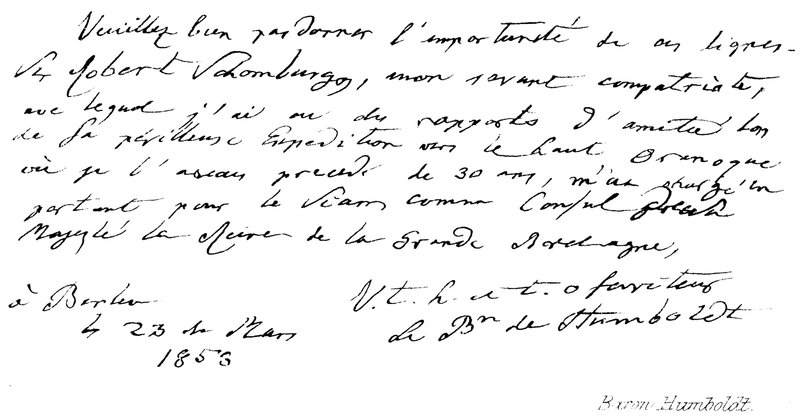 Veuillez bien pardonner l'importunité de ces lignes.
Sir Robert Schomburgk, mon savant compatriote,
avec lequel j'ai eu des rapports d'amitié lors
de sa périlleuse Expédition vers le haut Orenoque
où je l'avais précédé de 30 ans, m'a chargé en
partant pour le Siam comme Consul
Majesté la Reine de la Grande Bretagne,
à Berlin
le 23 de Mars
1853
V. t. h. et t. o serviteur
Le Bn de Humboldt
Baron Humboldt.